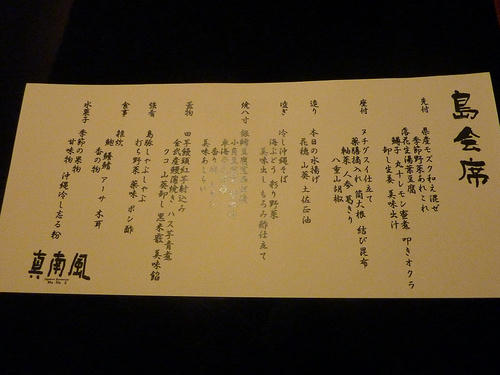 島会席
先付
県産モズク和え混ぜ
季節野菜あれこれ
落花生湯葉豆腐 叩きオクラ
鱒子 丸十レモン蜜煮
卸し生姜 美味出汁
座付
ヌチグスイ仕立て
薬膳揚入れ 筒大根 結び昆布
軸菜 人参 葛きり
八重山胡椒
造り
本日の水揚げ
花穂 山葵 土佐正油
凌ぎ
冷し沖縄そば
海ぶどう 彩り野菜
美味出し もろみ酢仕立て
焼八寸
美味あしらい
蓋物
四芋饅頭紅芋射込み
金武産鰻蒲焼き ハス芋青煮
クコ 山葵卸し 黒米霰 美味餡
強肴
島豚しゃぶしゃぶ
打ち野菜 薬味 ポン酢
食事
雑炊
鮑 鰻鱈 アーサ 木耳
香の物
水菓子
季節の果物
甘味物 沖縄冷し忘る粉
真南風